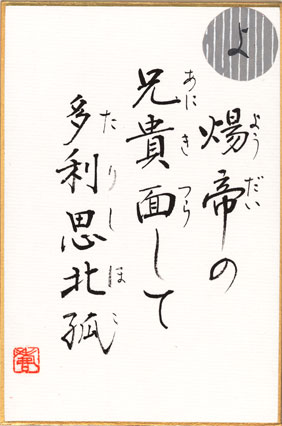 よ
煬帝の
ようだい
兄貴面して
あにきつら
多利思北孤
たりしほこ